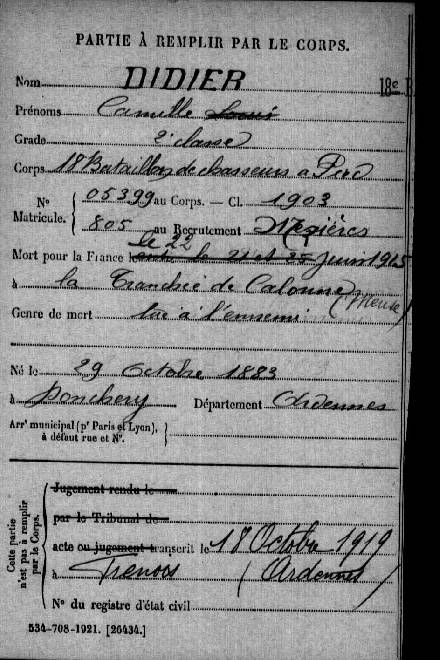 PARTIE À REMPLIR PAR LE CORPS.
Nom DIDIER
18e B
Prénoms Camille Louis
Grade 2e classe
Corps 18 Bataillon de chasseurs à Pied
No Matricule. 05399 au Corps. — Cl. 1903
805 au Recrutement Mézières
le 22
Mort pour la France le 21 et 25 Juin 1915
à la Tranchée de Calonne (Meuse)
Genre de mort tué à l'ennemi
Né le 29 Octobre 1883
à Donchery Département Ardennes
Arrt municipal (pr Paris et Lyon),
à défaut rue et No.
Cette partie n'est pas à remplir par le Corps.
Jugement rendu le
par le Tribunal de
acte ou jugement transcrit le 18 Octobre 1919
à (Ardennes)
No du registre d'état civil
534-708-1921. [26434.]